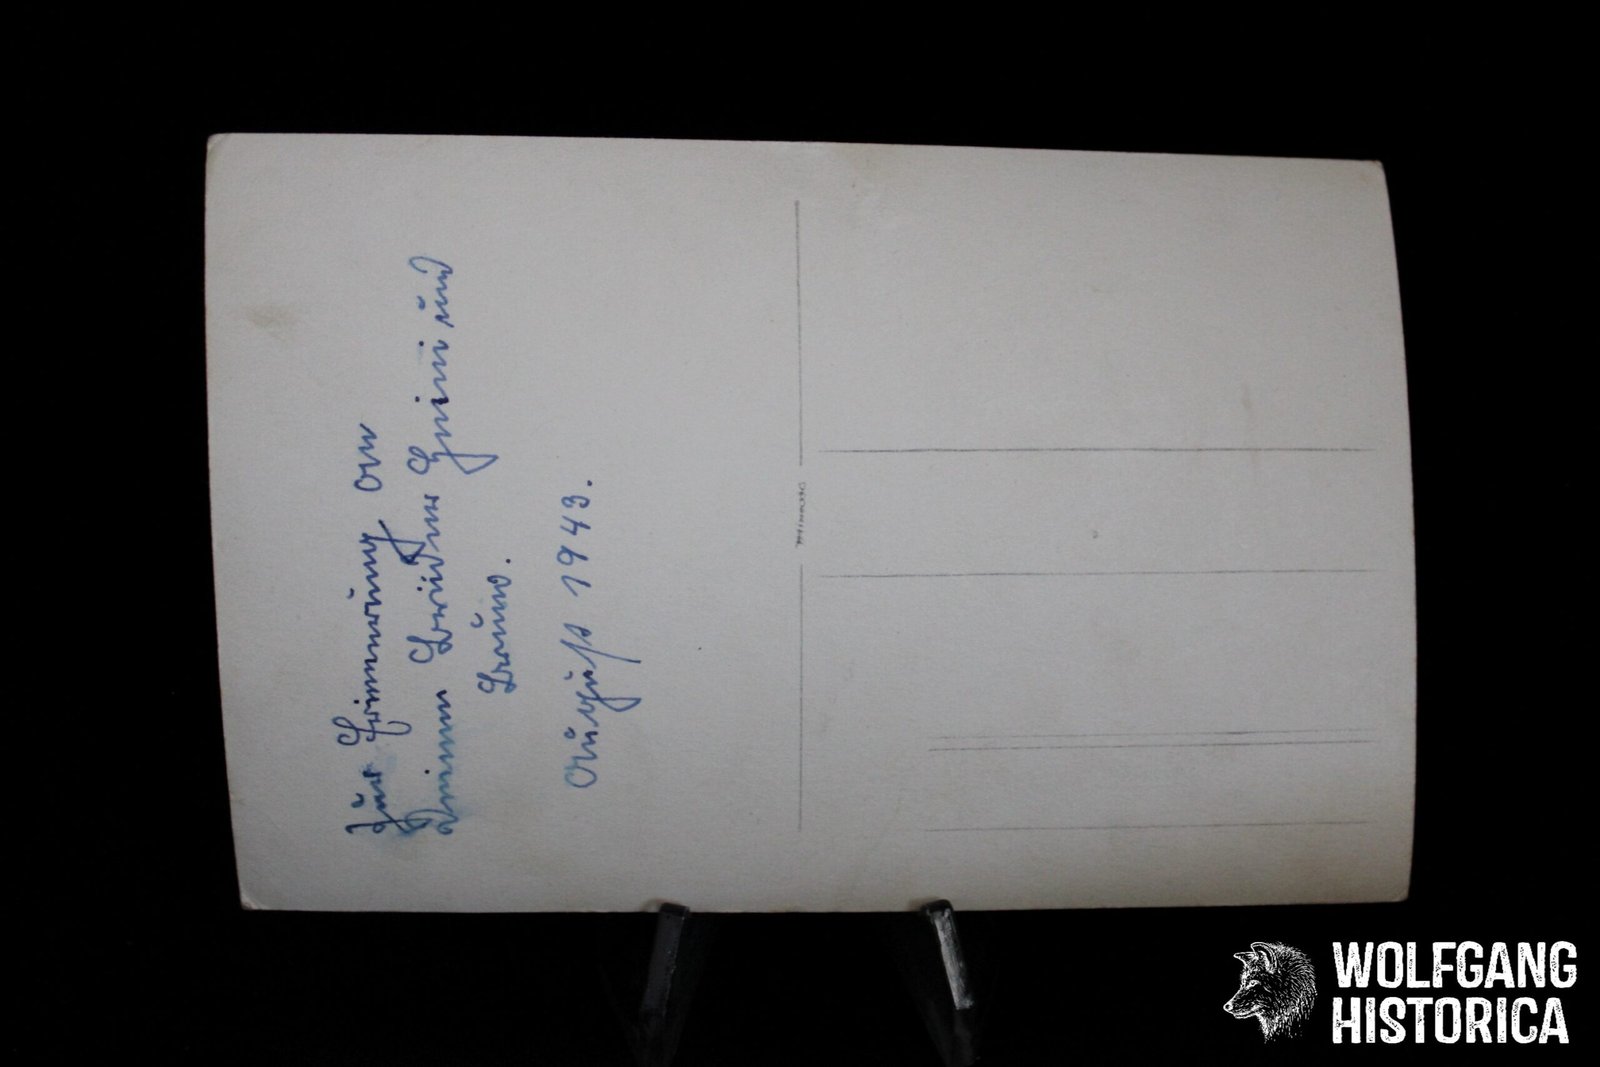 Zur Erinnerung an
Deinen Bruder Heini und
Bruno.
August 1943.
WOLFGANG
HISTORICA